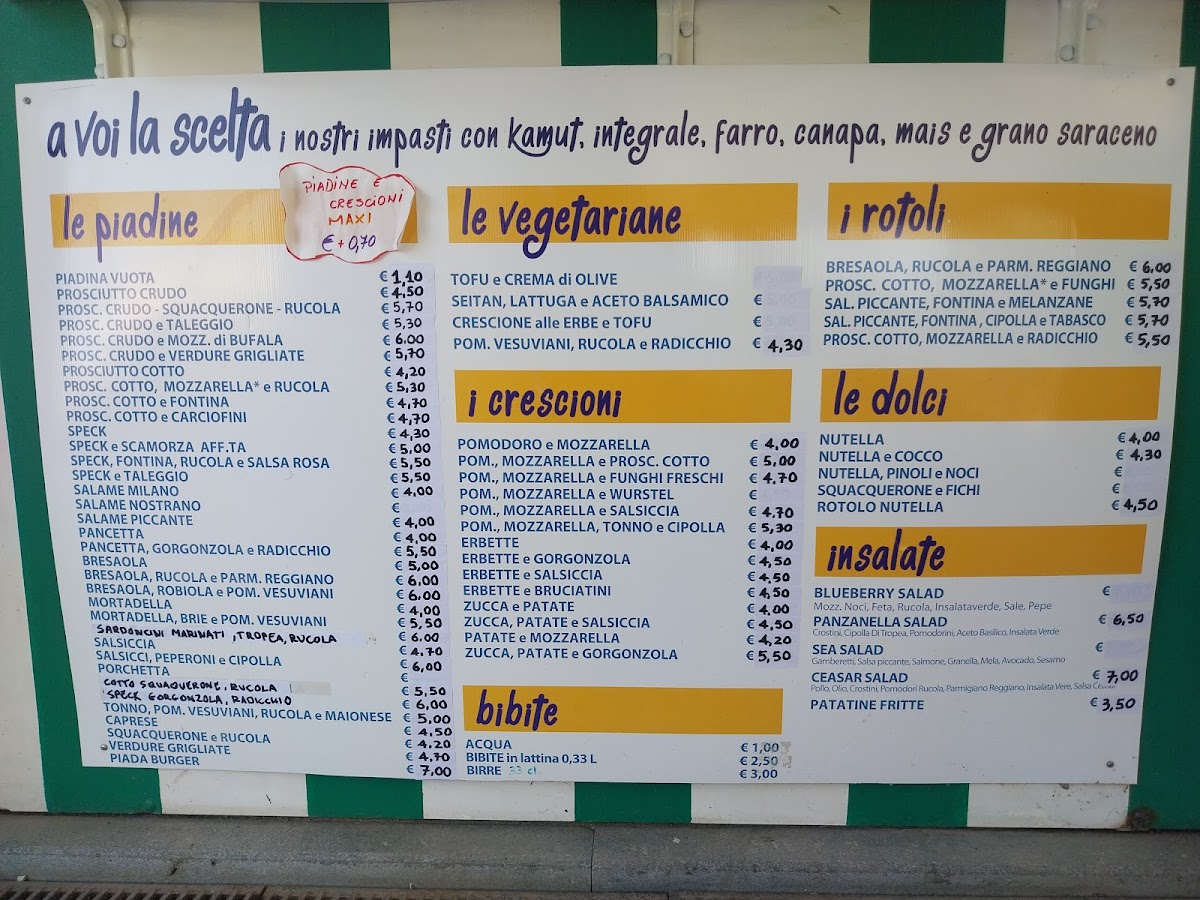 a voi la scelta i nostri impasti con kamut, integrale, farro, canapa, mais e grano saraceno
le piadine
PIADINE E
CRESCIONI
MAXI
€ + 0,70
PIADINA VUOTA € 1,10
PROSCIUTTO CRUDO € 4,50
PROSC. CRUDO - SQUACQUERONE - RUCOLA € 5,70
PROSC. CRUDO e TALEGGIO € 5,30
PROSC. CRUDO e MOZZ. di BUFALA € 6.00
PROSC. CRUDO e VERDURE GRIGLIATE € 5,70
PROSCIUTTO COTTO € 4,20
PROSC. COTTO, MOZZARELLA* e RUCOLA € 5,30
PROSC. COTTO e FONTINA € 4,70
PROSC. COTTO e CARCIOFINI € 4,70
SPECK € 4,30
SPECK e SCAMORZA AFF.TA € 5,00
SPECK, FONTINA, RUCOLA e SALSA ROSA € 5,50
SPECK e TALEGGIO € 5,50
SALAME MILANO € 4,00
SALAME NOSTRANO €
SALAME PICCANTE € 4,00
PANCETTA € 4,00
PANCETTA, GORGONZOLA e RADICCHIO € 5,50
BRESAOLA € 5,00
BRESAOLA, RUCOLA e PARM. REGGIANO € 6,00
BRESAOLA, ROBIOLA e POM. VESUVIANI € 6,00
MORTADELLA € 4,00
MORTADELLA, BRIE e POM. VESUVIANI € 5,50
SARDONCINI MARINATI, TROPEA, RUCOLA € 6.00
SALSICCIA € 4.70
SALSICCI, PEPERONI e CIPOLLA € 6,00
PORCHETTA €
COTTO SQUAQUERONE, RUCOLA € 5,50
SPECK GORGONZOLA, RADICCHIO € 6,00
TONNO, POM. VESUVIANI, RUCOLA e MAIONESE € 5,00
CAPRESE € 4.50
SQUACQUERONE e RUCOLA € 4.20
VERDURE GRIGLIATE € 4.70
PIADA BURGER € 7,00
le vegetariane
TOFU e CREMA di OLIVE
SEITAN, LATTUGA e ACETO BALSAMICO €
CRESCIONE alle ERBE e TOFU €
POM. VESUVIANI, RUCOLA e RADICCHIO € 4,30
i crescioni
POMODORO e MOZZARELLA € 4,00
POM., MOZZARELLA e PROSC. COTTO € 5,00
POM., MOZZARELLA e FUNGHI FRESCHI € 4.70
POM., MOZZARELLA e WURSTEL €
POM., MOZZARELLA e SALSICCIA € 4.70
POM., MOZZARELLA, TONNO e CIPOLLA € 5,30
ERBETTE € 4,00
ERBETTE e GORGONZOLA € 4,50
ERBETTE e SALSICCIA € 4.50
ERBETTE e BRUCIATINI € 4,50
ZUCCA e PATATE € 4,00
ZUCCA, PATATE e SALSICCIA € 4,50
PATATE e MOZZARELLA € 4,20
ZUCCA, PATATE e GORGONZOLA € 5,50
bibite
ACQUA € 1,00
BIBITE in lattina 0,33 L € 2,50
BIRRE 33 cl. € 3,00
i rotoli
BRESAOLA, RUCOLA e PARM. REGGIANO € 6,00
PROSC. COTTO, MOZZARELLA* e FUNGHI € 5,50
SAL. PICCANTE, FONTINA e MELANZANE € 5,70
SAL. PICCANTE, FONTINA , CIPOLLA e TABASCO € 5,70
PROSC. COTTO, MOZZARELLA e RADICCHIO € 5,50
le dolci
NUTELLA € 4,00
NUTELLA e COCCO € 4,30
NUTELLA, PINOLI e NOCI €
SQUACQUERONE e FICHI €
ROTOLO NUTELLA € 4,50
insalate
BLUEBERRY SALAD €
Mozz. Noci, Feta, Rucola, Insalataverde, Sale, Pepe
PANZANELLA SALAD € 6,50
Crostini, Cipolla Di Tropea, Pomodorini, Aceto Basilico, Insalata Verde
SEA SALAD €
Gamberetti, Salsa piccante, Salmone, Granella, Mela, Avocado, Sesamo
CEASAR SALAD € 7,00
Pollo, Olio, Crostini, Pomodori Rucola, Parmigiano Reggiano, Insalata Vere, Salsa
PATATINE FRITTE € 3,50